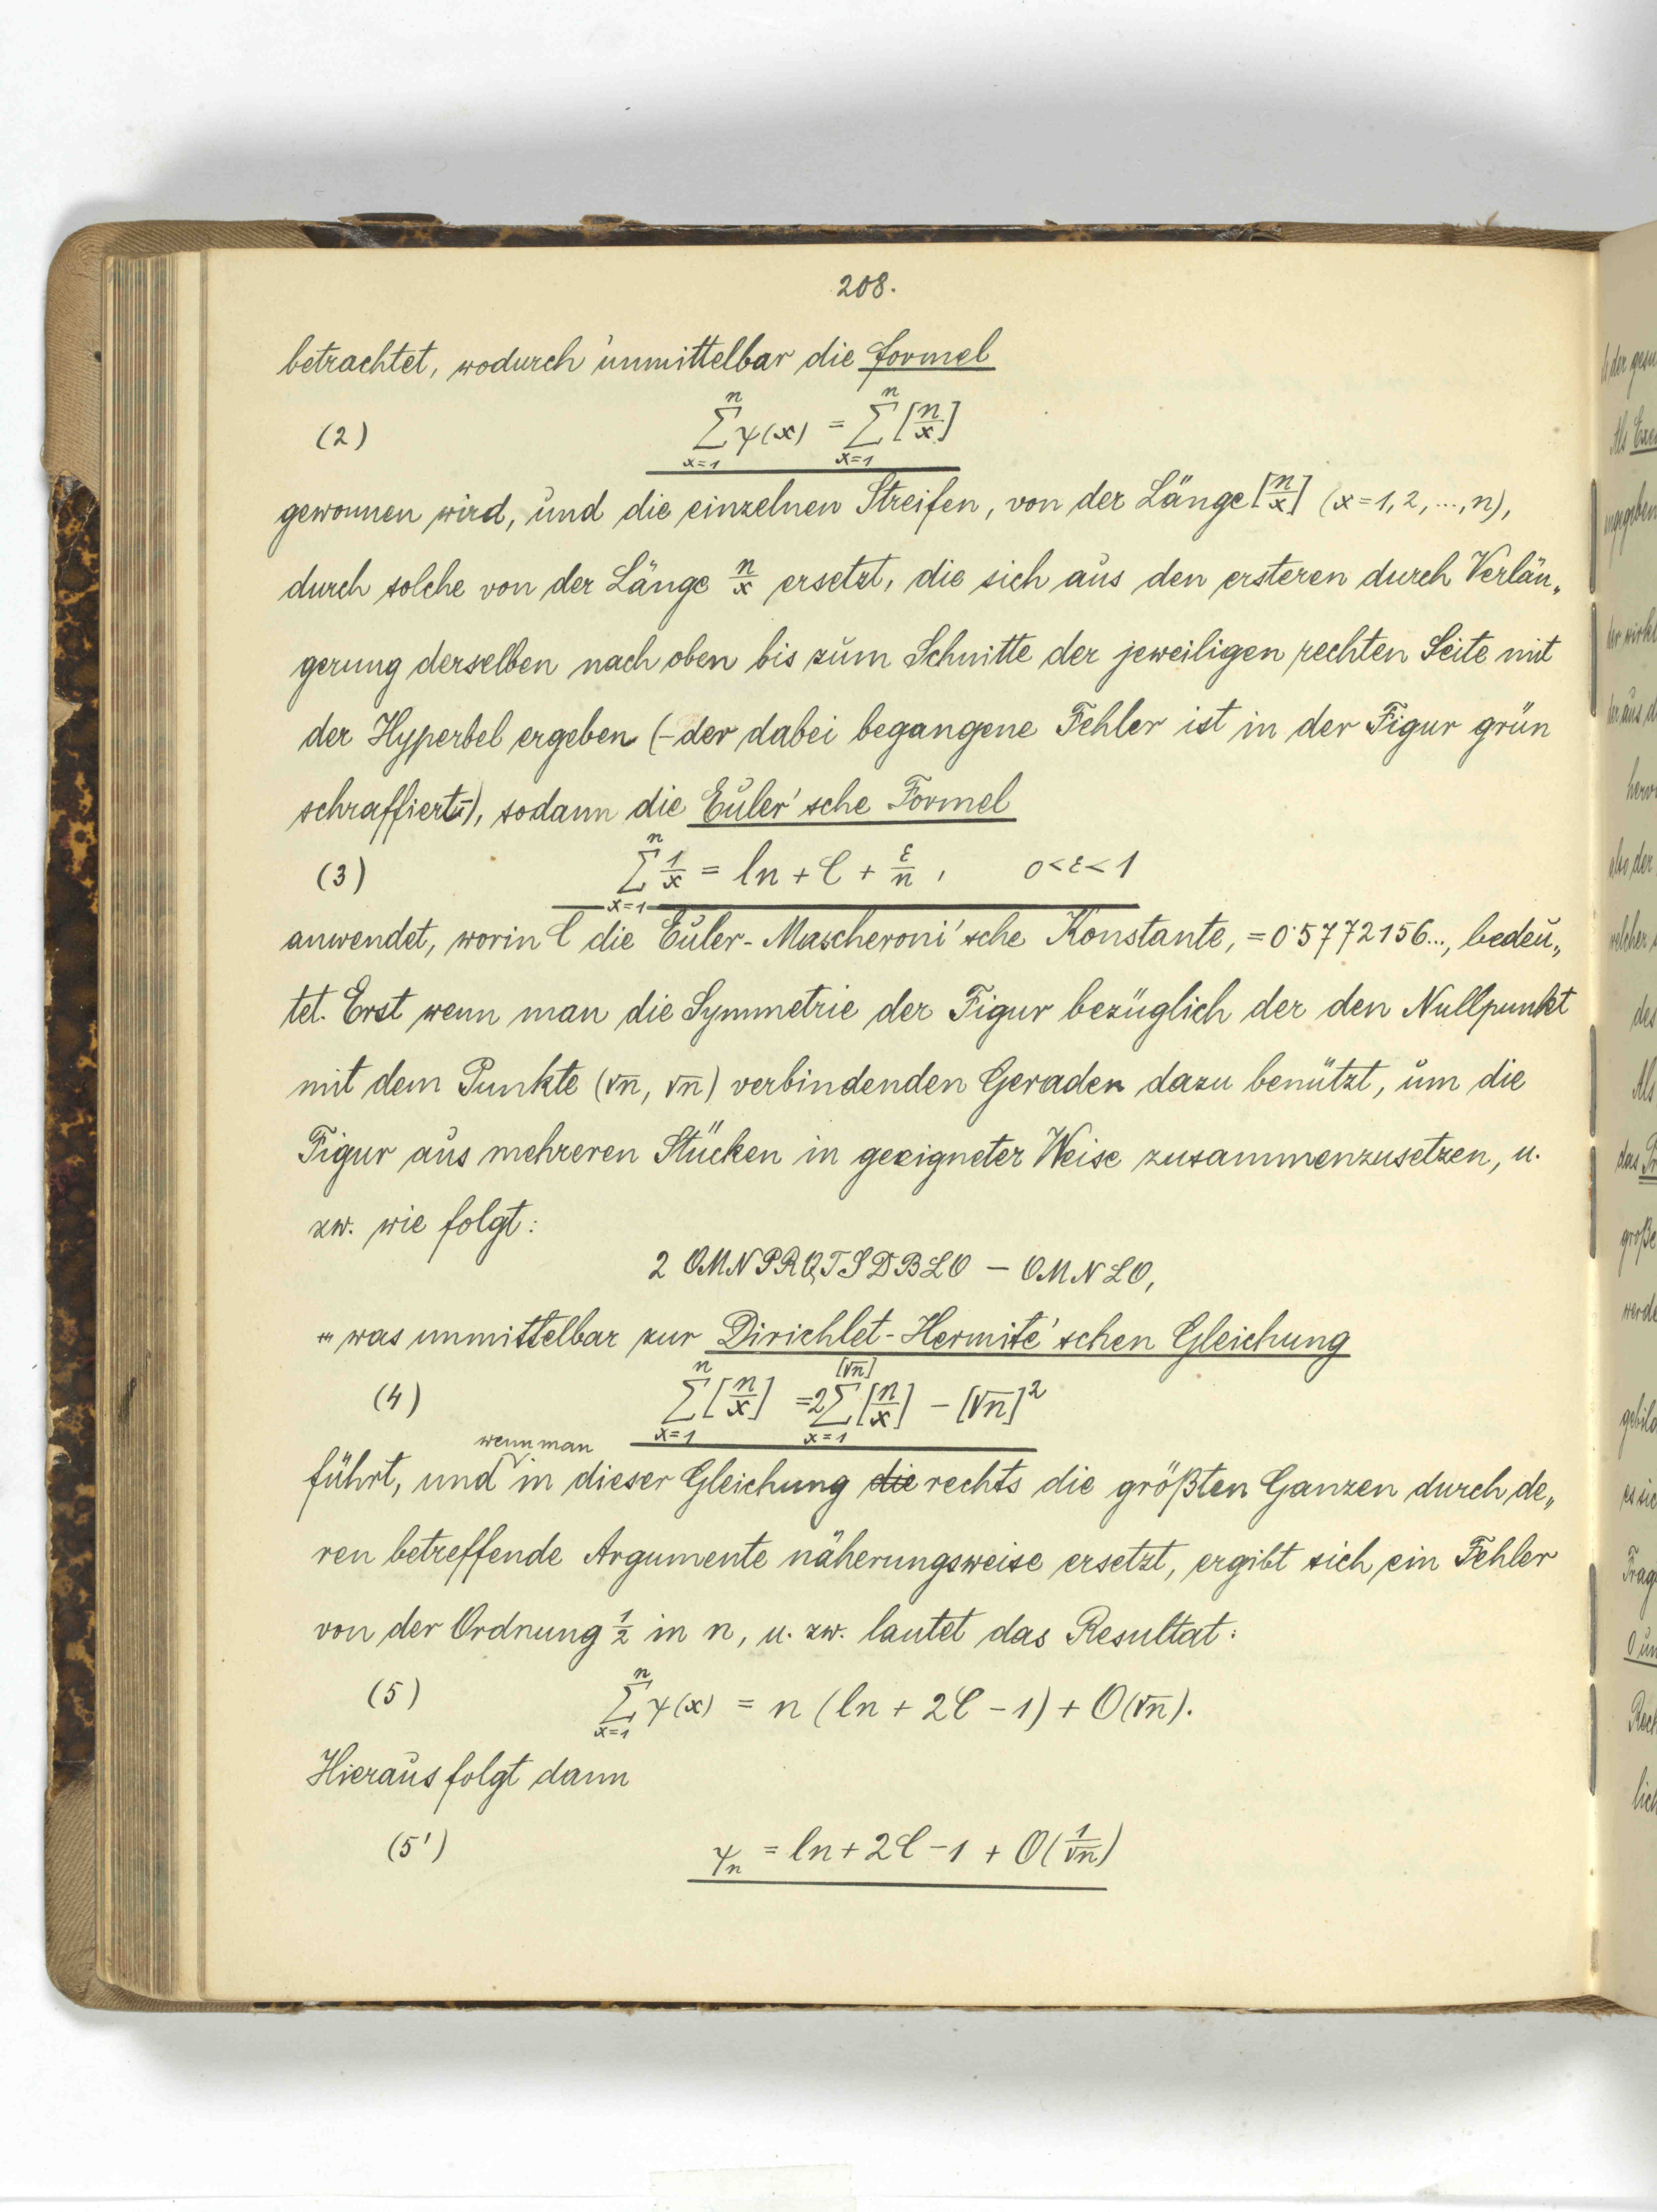 208.
betrachtet, wodurch unmittelbar die Formel
(2) \sum_{x=1}^{n} ψ(x) = \sum_{x=1}^{n} [\frac{n}{x}]
gewonnen wird, und die einzelnen Streifen, von der Länge [\frac{n}{x}] (x=1,2,...,n),
durch solche von der Länge \frac{n}{x} ersetzt, die sich aus den ersteren durch Verlän„
gerung derselben nach oben bis zum Schnitte der jeweiligen rechten Seite mit
der Hyperbel ergeben (– der dabei begangene Fehler ist in der Figur grün
schraffiert –), sodann die Euler'sche Formel
(3) \sum_{x=1}^{n} \frac{1}{x} = ln + C + \frac{ε}{n}, 0<ε<1
anwendet, worin C die Euler-Mascheroni'sche Konstante, =0·5772156..., bedeu„
tet. Erst wenn man die Symmetrie der Figur bezüglich der den Nullpunkt
mit dem Punkte (√n, √n) verbindenden Geraden dazu benützt, um die
Figur aus mehreren Stücken in geeigneter Weise zusammenzusetzen, u.
zw. wie folgt:
2 OMNPRQTSDBLO – OMNLO,
was unmittelbar zur Dirichlet-Hermite'schen Gleichung
(4) \sum_{x=1}^{n} [\frac{n}{x}] = 2\sum_{x=1}^{[√n]} [\frac{n}{x}] – [√n]^2
führt, und wenn man in dieser Gleichung die rechts die größten Ganzen durch de„
ren betreffende Argumente näherungsweise ersetzt, ergibt sich ein Fehler
von der Ordnung \frac{1}{2} in n, u. zw. lautet das Resultat:
(5) \sum_{x=1}^{n} ψ(x) = n (ln + 2C – 1) + O(√n).
Hieraus folgt dann
(5') ψ_n = ln + 2C – 1 + O(\frac{1}{√n})